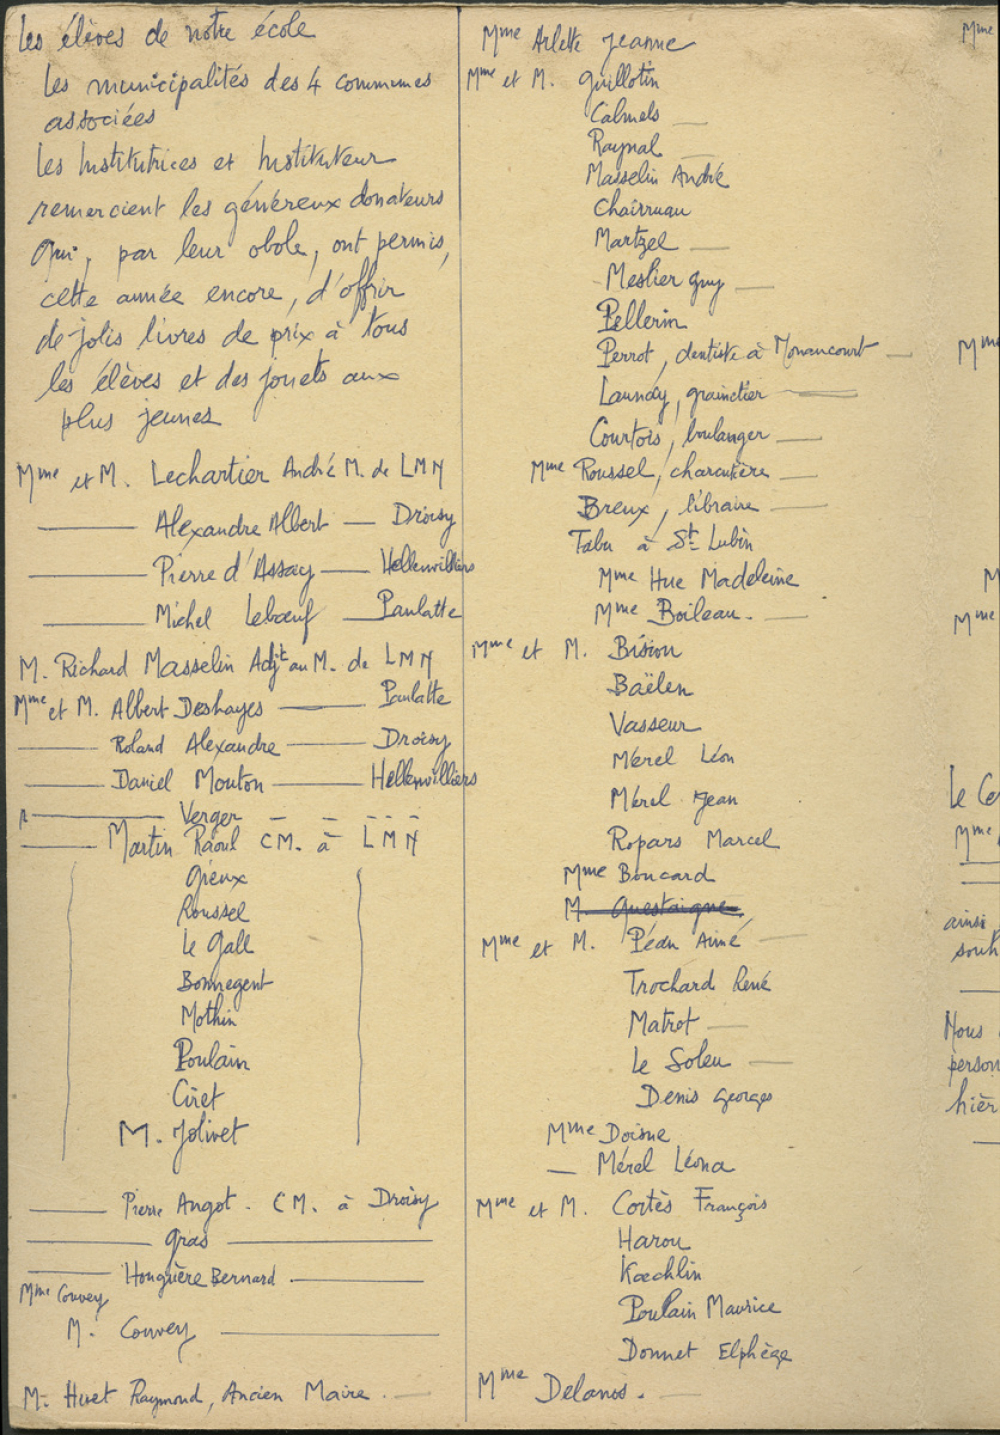 Les élèves de notre école
Les municipalités des 4 communes
associées
Les Institutrices et Instituteur
remercient les généreux donateurs
qui, par leur obole, ont permis,
cette année encore, d'offrir
de jolis livres de prix à tous
les élèves et des jouets aux
plus jeunes
Mme et M. Lechartier André M. de LMN
Alexandre Albert — Droisy
Pierre d'Assay — Hellenvilliers
Michel Lebœuf — Panlatte
M. Richard Masselin Adjt au M. de LMN
Mme et M. Albert Deshayes — Panlatte
Roland Alexandre — Droisy
Daniel Mouton — Hellenvilliers
Verger
Martin Raoul CM. à LMN
Grieux
Roussel
Le Gall
Bonnegent
Mothin
Poulain
Ciret
M. Jolivet
Pierre Angot. CM. à Droisy
Gras
Honguère Bernard
Mme Couvey
M. Couvey
M. Huet Raymond, Ancien Maire.
Mme Arlette Jeanne
Mme et M. Guillotin
Calmels
Raynal
Masselin André
Chairruau
Martzel
Meslier Guy
Pellerin
Perrot, dentiste à Nonancourt
Launay, grainetier
Courtois, boulanger
Mme Roussel, charcutière
Breux, libraire
Tabu à St Lubin
Mme Hue Madeleine
Mme Boileau.
Mme et M. Bision
Baëlen
Vasseur
Mérel Léon
Mérel Jean
Ropars Marcel
Mme Boucard
M. Questaigne
Mme et M. Péan Aimé
Trochard René
Matrot
Le Soleu
Denis Georges
Mme Doisne
— Mérel Léona
Mme et M. Cortès François
Harou
Kœchlin
Poulain Maurice
Donnet Elphège
Mme Delanos.
Mme
Mme
M
Mme
Le Ce
Mme
ainsi
souh
Nous
person
hier